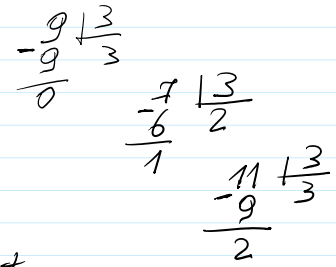 9 | 3
- 9 3
0
7 | 3
- 6 2
1
11 | 3
- 9 3
2